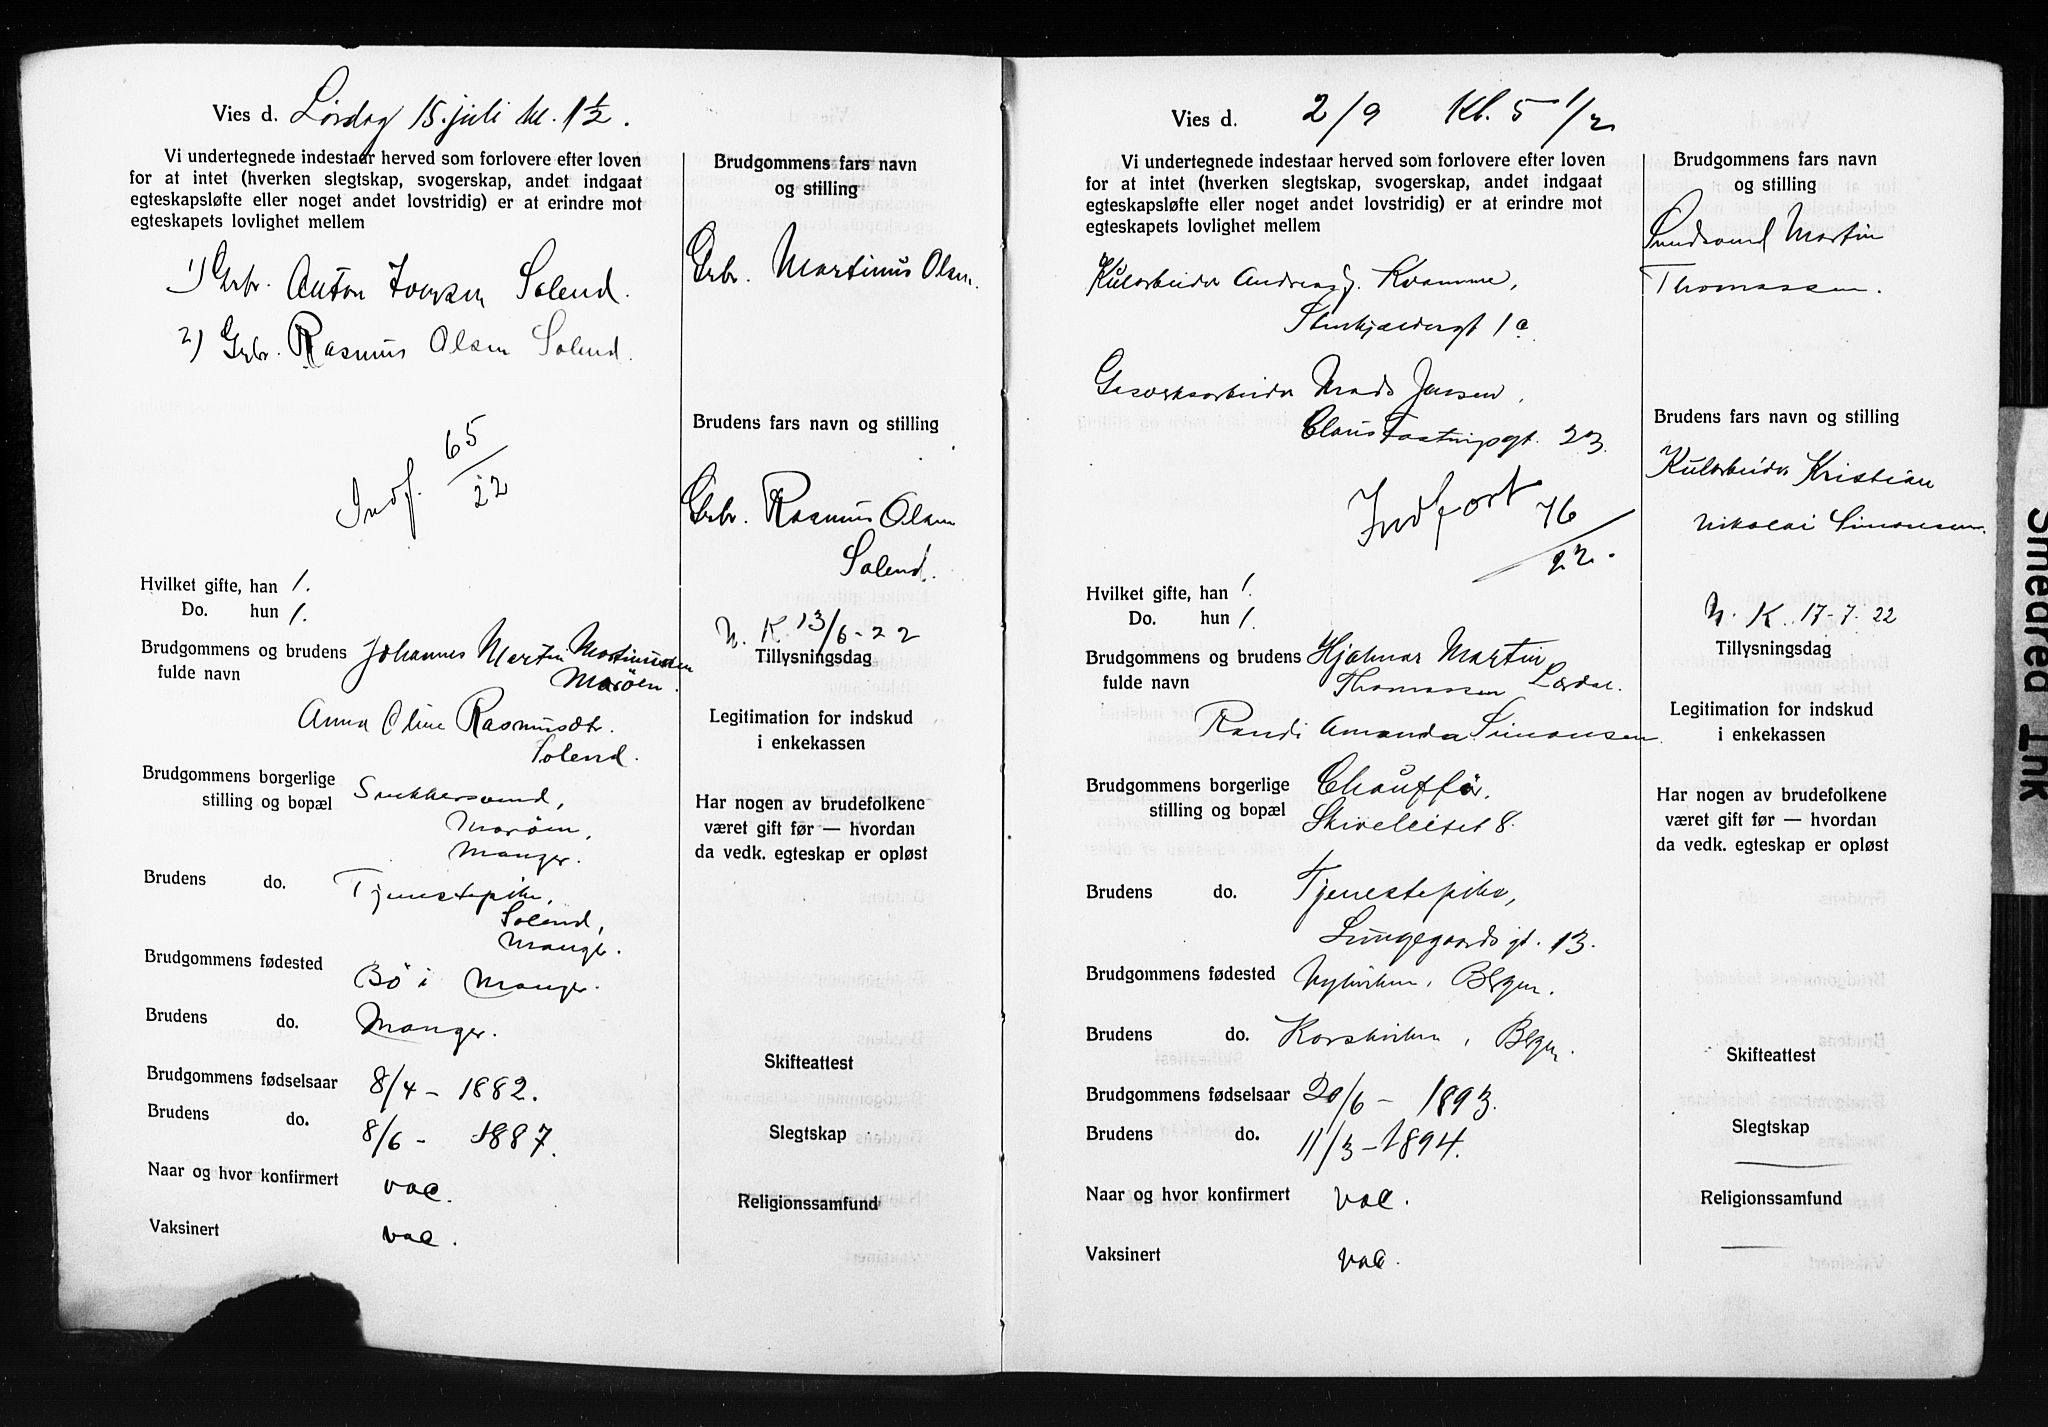 Vies d. Lördag 15. juli kl. 1½.
Vi undertegnede indestaar herved som forlovere efter loven
for at intet (hverken slegtskap, svogerskap, andet indgaat
egteskapsløfte eller noget andet lovstridig) er at erindre mot
egteskapets lovlighet mellem
1) Grbr. Anton Iversen Solend.
2) Grbr. Rasmus Olsen Solend.
Indf. 65/22
Hvilket gifte, han 1.
Do. hun 1.
Brudgommens og brudens Johannes Martin Martinussen
fulde navn Marøen.
Anna Oline Rasmusdtr.
Solend.
Brudgommens borgerlige
stilling og bopæl Snekkersvend,
Marøen,
Manger.
Brudens do. Tjenestepike,
Solend,
Manger.
Brudgommens fødested Bö i Manger.
Brudens do. Manger.
Brudgommens fødselsaar 8/4 - 1882.
Brudens do. 8/6 - 1887.
Naar og hvor konfirmert vac.
Vaksinert vac.
Brudgommens fars navn
og stilling
Grbr. Martinus Olsen.
Brudens fars navn og stilling
Grbr. Rasmus Olsen
Solend.
N. K. 13/6-22
Tillysningsdag
Legitimation for indskud
i enkekassen
Har nogen av brudefolkene
været gift før — hvordan
da vedk. egteskap er opløst
Skifteattest
Slegtskap
Religionssamfund
Vies d. 2/9 Kl. 5 1/2
Vi undertegnede indestaar herved som forlovere efter loven
for at intet (hverken slegtskap, svogerskap, andet indgaat
egteskapsløfte eller noget andet lovstridig) er at erindre mot
egteskapets lovlighet mellem
Kularbeider Andreas J. Kvamme,
1a.
Gasverksarbeider Mads Jensen,
Claus Fastingsgt. 23.
Indført 76/22.
Hvilket gifte, han 1.
Do. hun 1.
Brudgommens og brudens Hjalmar Martin
fulde navn Thomassen Lærdal.
Randi Amanda Simonsen.
Brudgommens borgerlige Chauffør,
stilling og bopæl Skivebakken 8.
Brudens do. Tjenestepike,
Lungegaardsgt. 13.
Brudgommens fødested Nykirken, Bergen.
Brudens do. Korskirken, Bergen.
Brudgommens fødselsaar 20/6 - 1893.
Brudens do. 11/3 - 1894.
Naar og hvor konfirmert vac.
Vaksinert vac.
Brudgommens fars navn
og stilling
Martin
Thomassen.
Brudens fars navn og stilling
Kularbeider Kristian
Nikolai Simonsen.
N. K. 17-7-22
Tillysningsdag
Legitimation for indskud
i enkekassen
Har nogen av brudefolkene
været gift før — hvordan
da vedk. egteskap er opløst
Skifteattest
Slegtskap
Religionssamfund
Smedred Ink